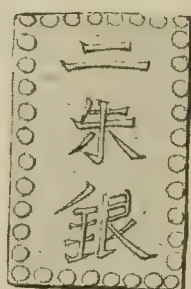 二
朱
銀